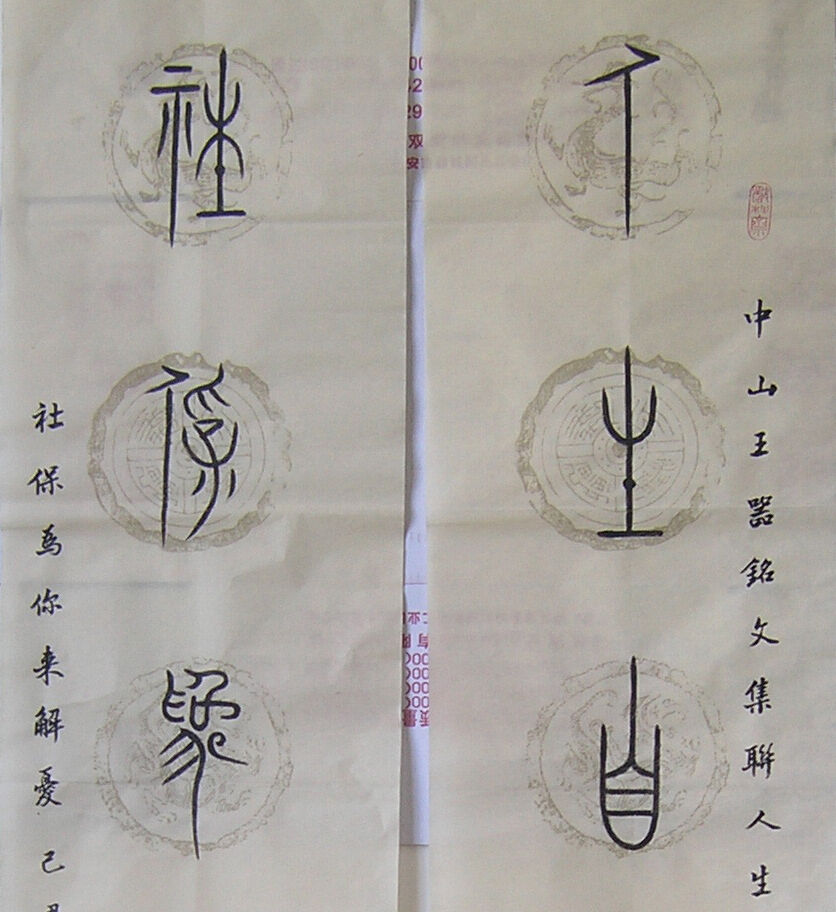 中山王噐銘文集聯人生
人生自
社保為
社保為你来解憂己